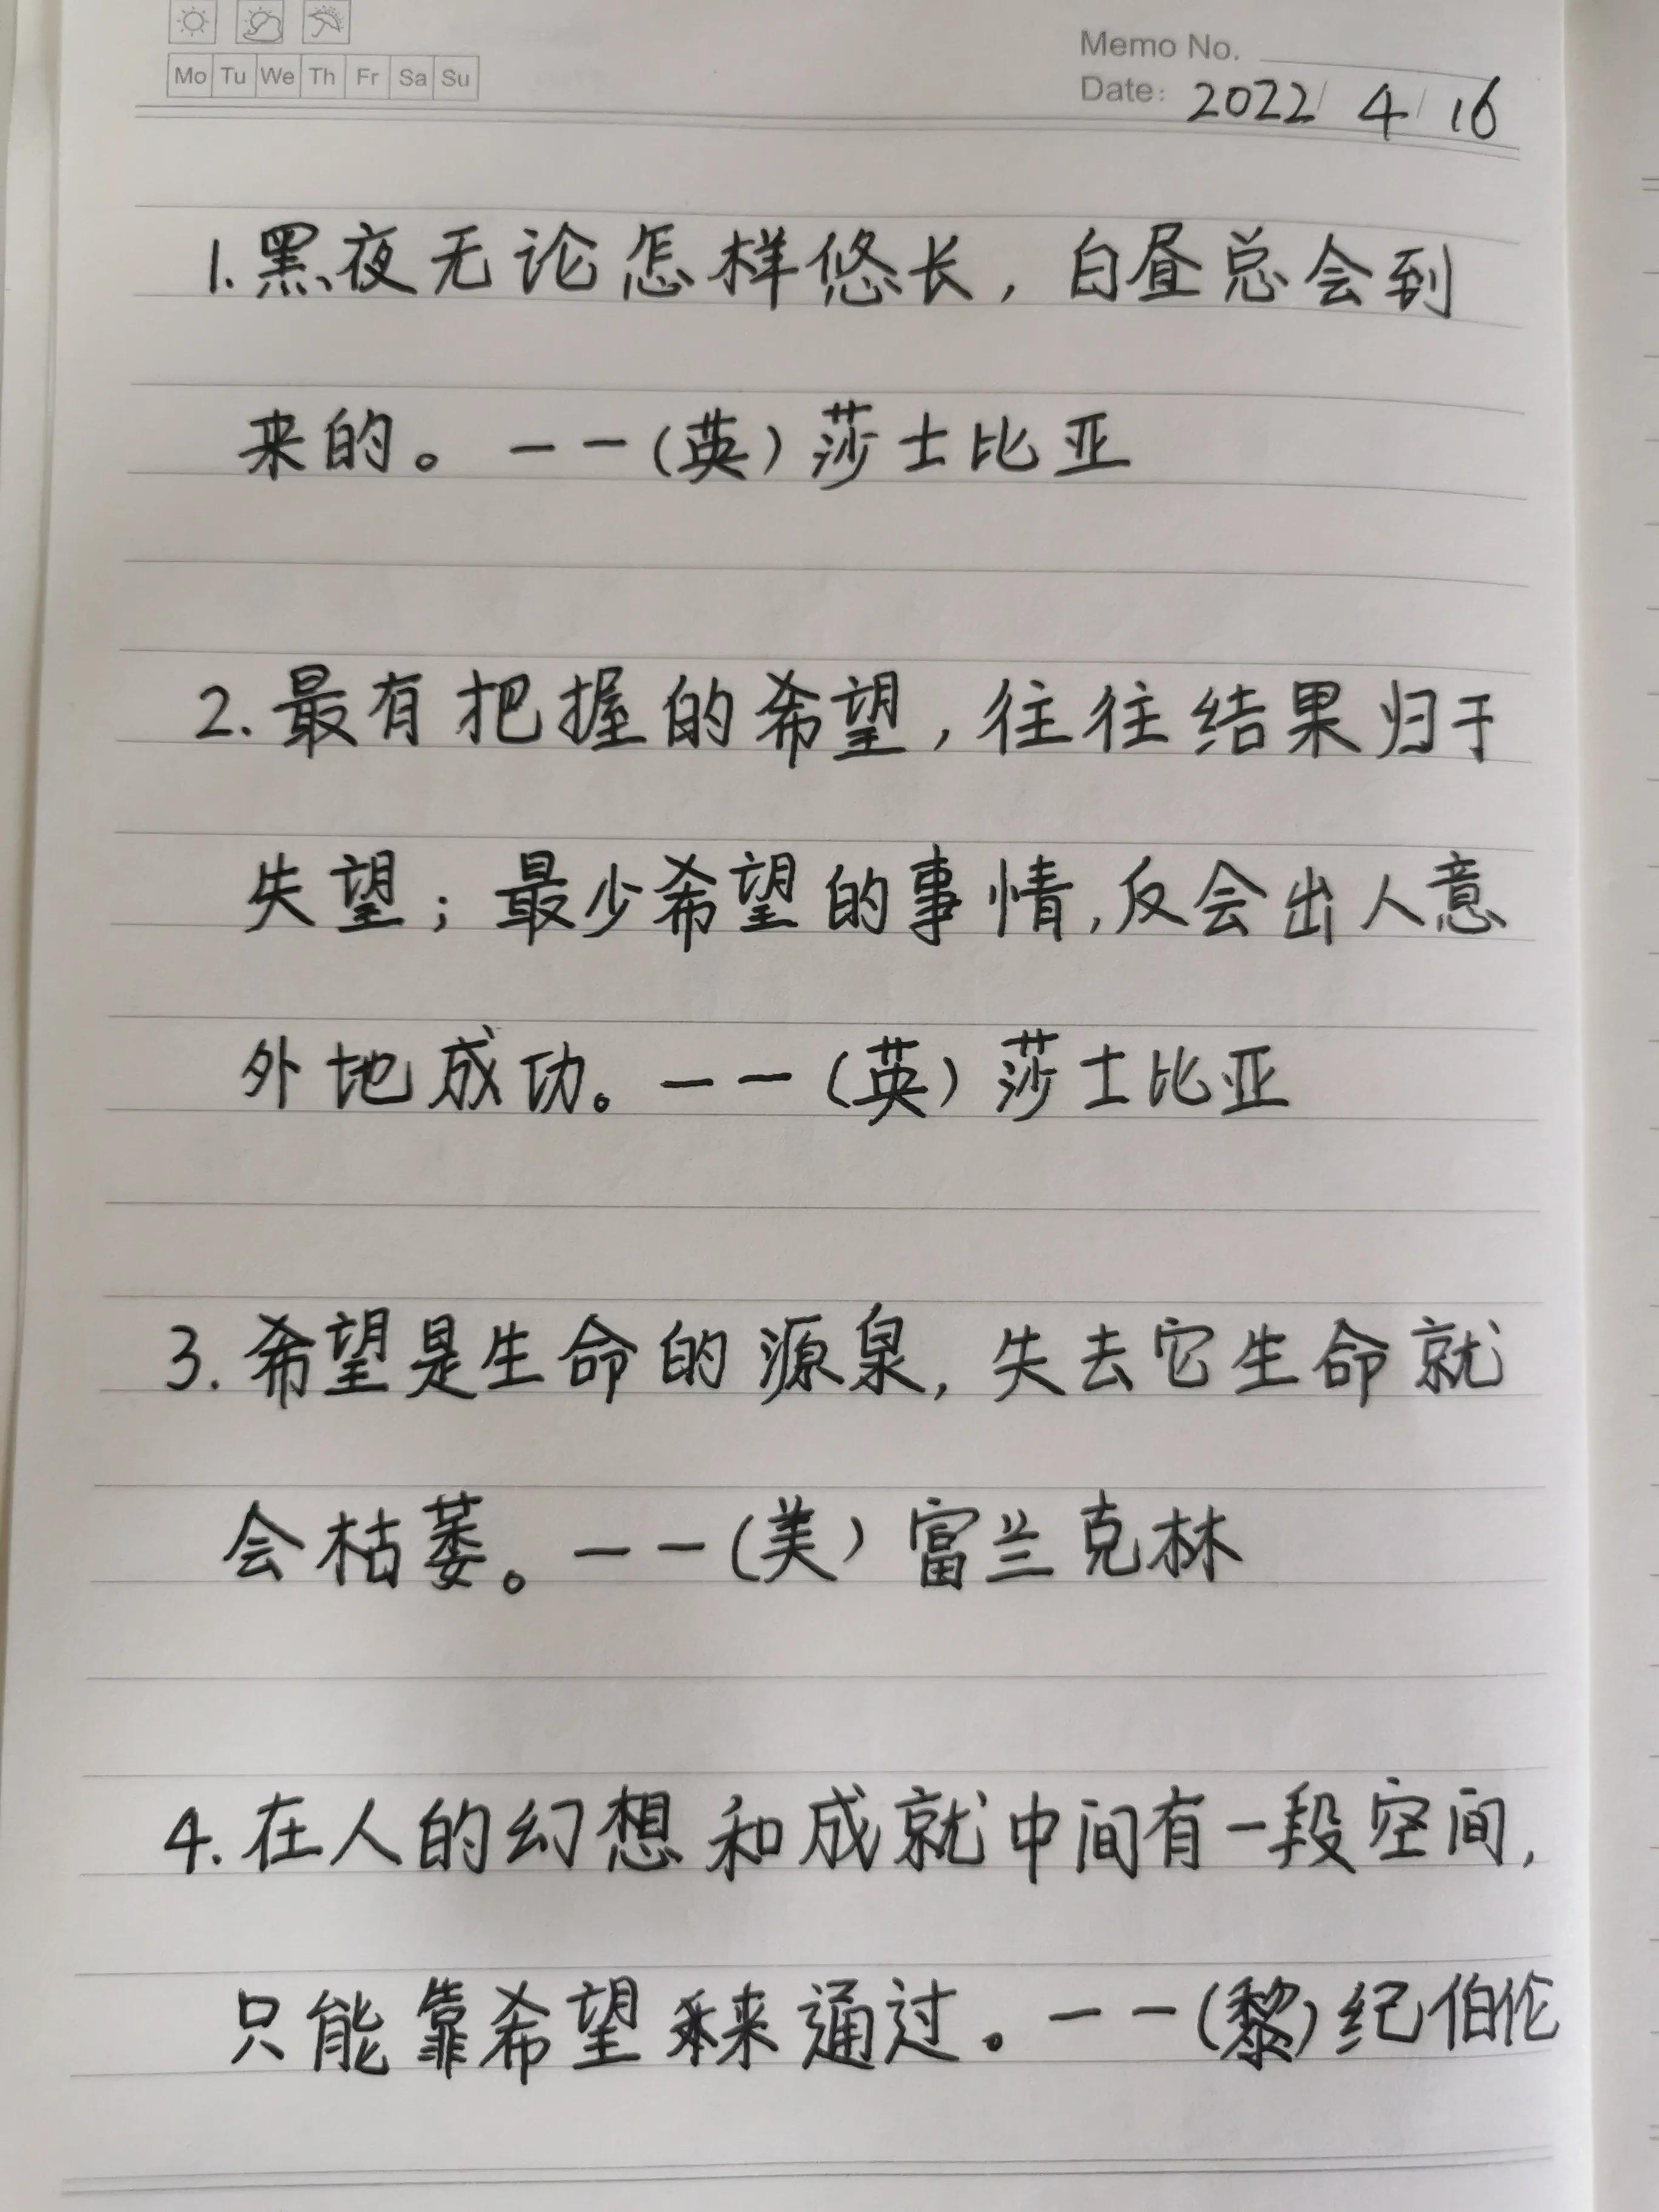 Mo Tu We Th Fr Sa Su
Memo No.
Date: 2022/4/16
1.黑夜无论怎样悠长，白昼总会到
来的。——(英)莎士比亚
2.最有把握的希望，往往结果归于
失望；最少希望的事情,反会出人意
外地成功。——(英)莎士比亚
3.希望是生命的源泉,失去它生命就
会枯萎。——(美)富兰克林
4.在人的幻想和成就中间有一段空间,
只能靠希望来通过。——(黎)纪伯伦